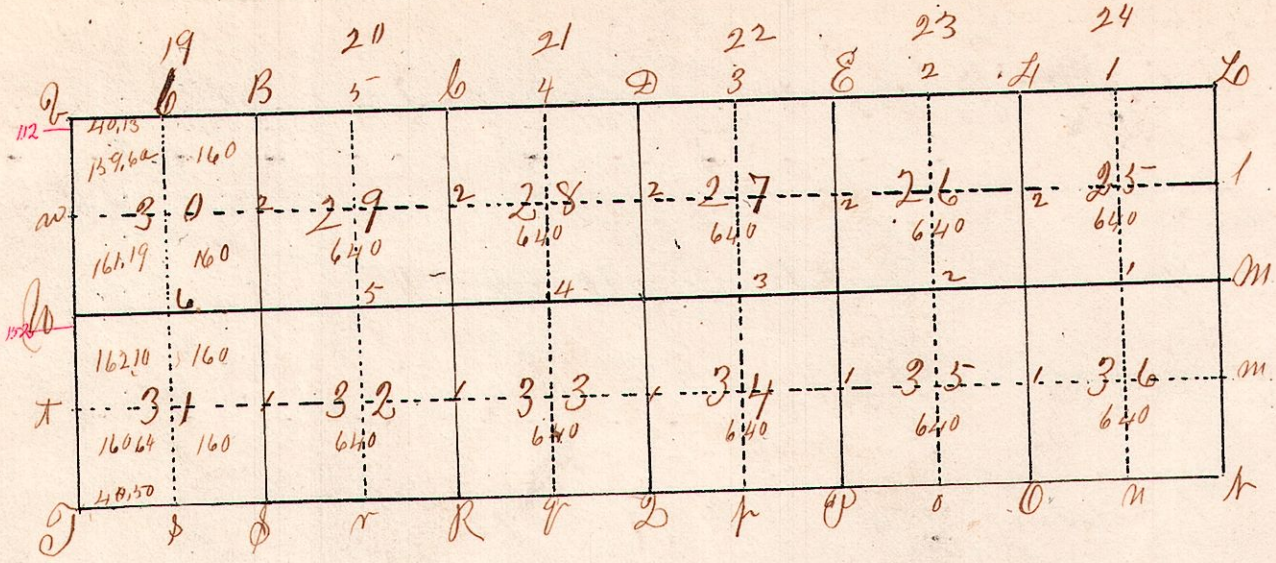 19 20 21 22 23 24
6 B 5 C 4 D 3 E 2 1 L
112 40,13
159,62 160
w 30 2 29 2 28 2 27 2 26 2 25 l
161,19 160 640 640 640 640 640
6 5 4 3 2 1 M
162,10 160
t 31 1 32 1 33 1 34 1 35 1 36 m
160,64 160 640 640 640 640 640
40,50
T s S r R q Q p P o O n N